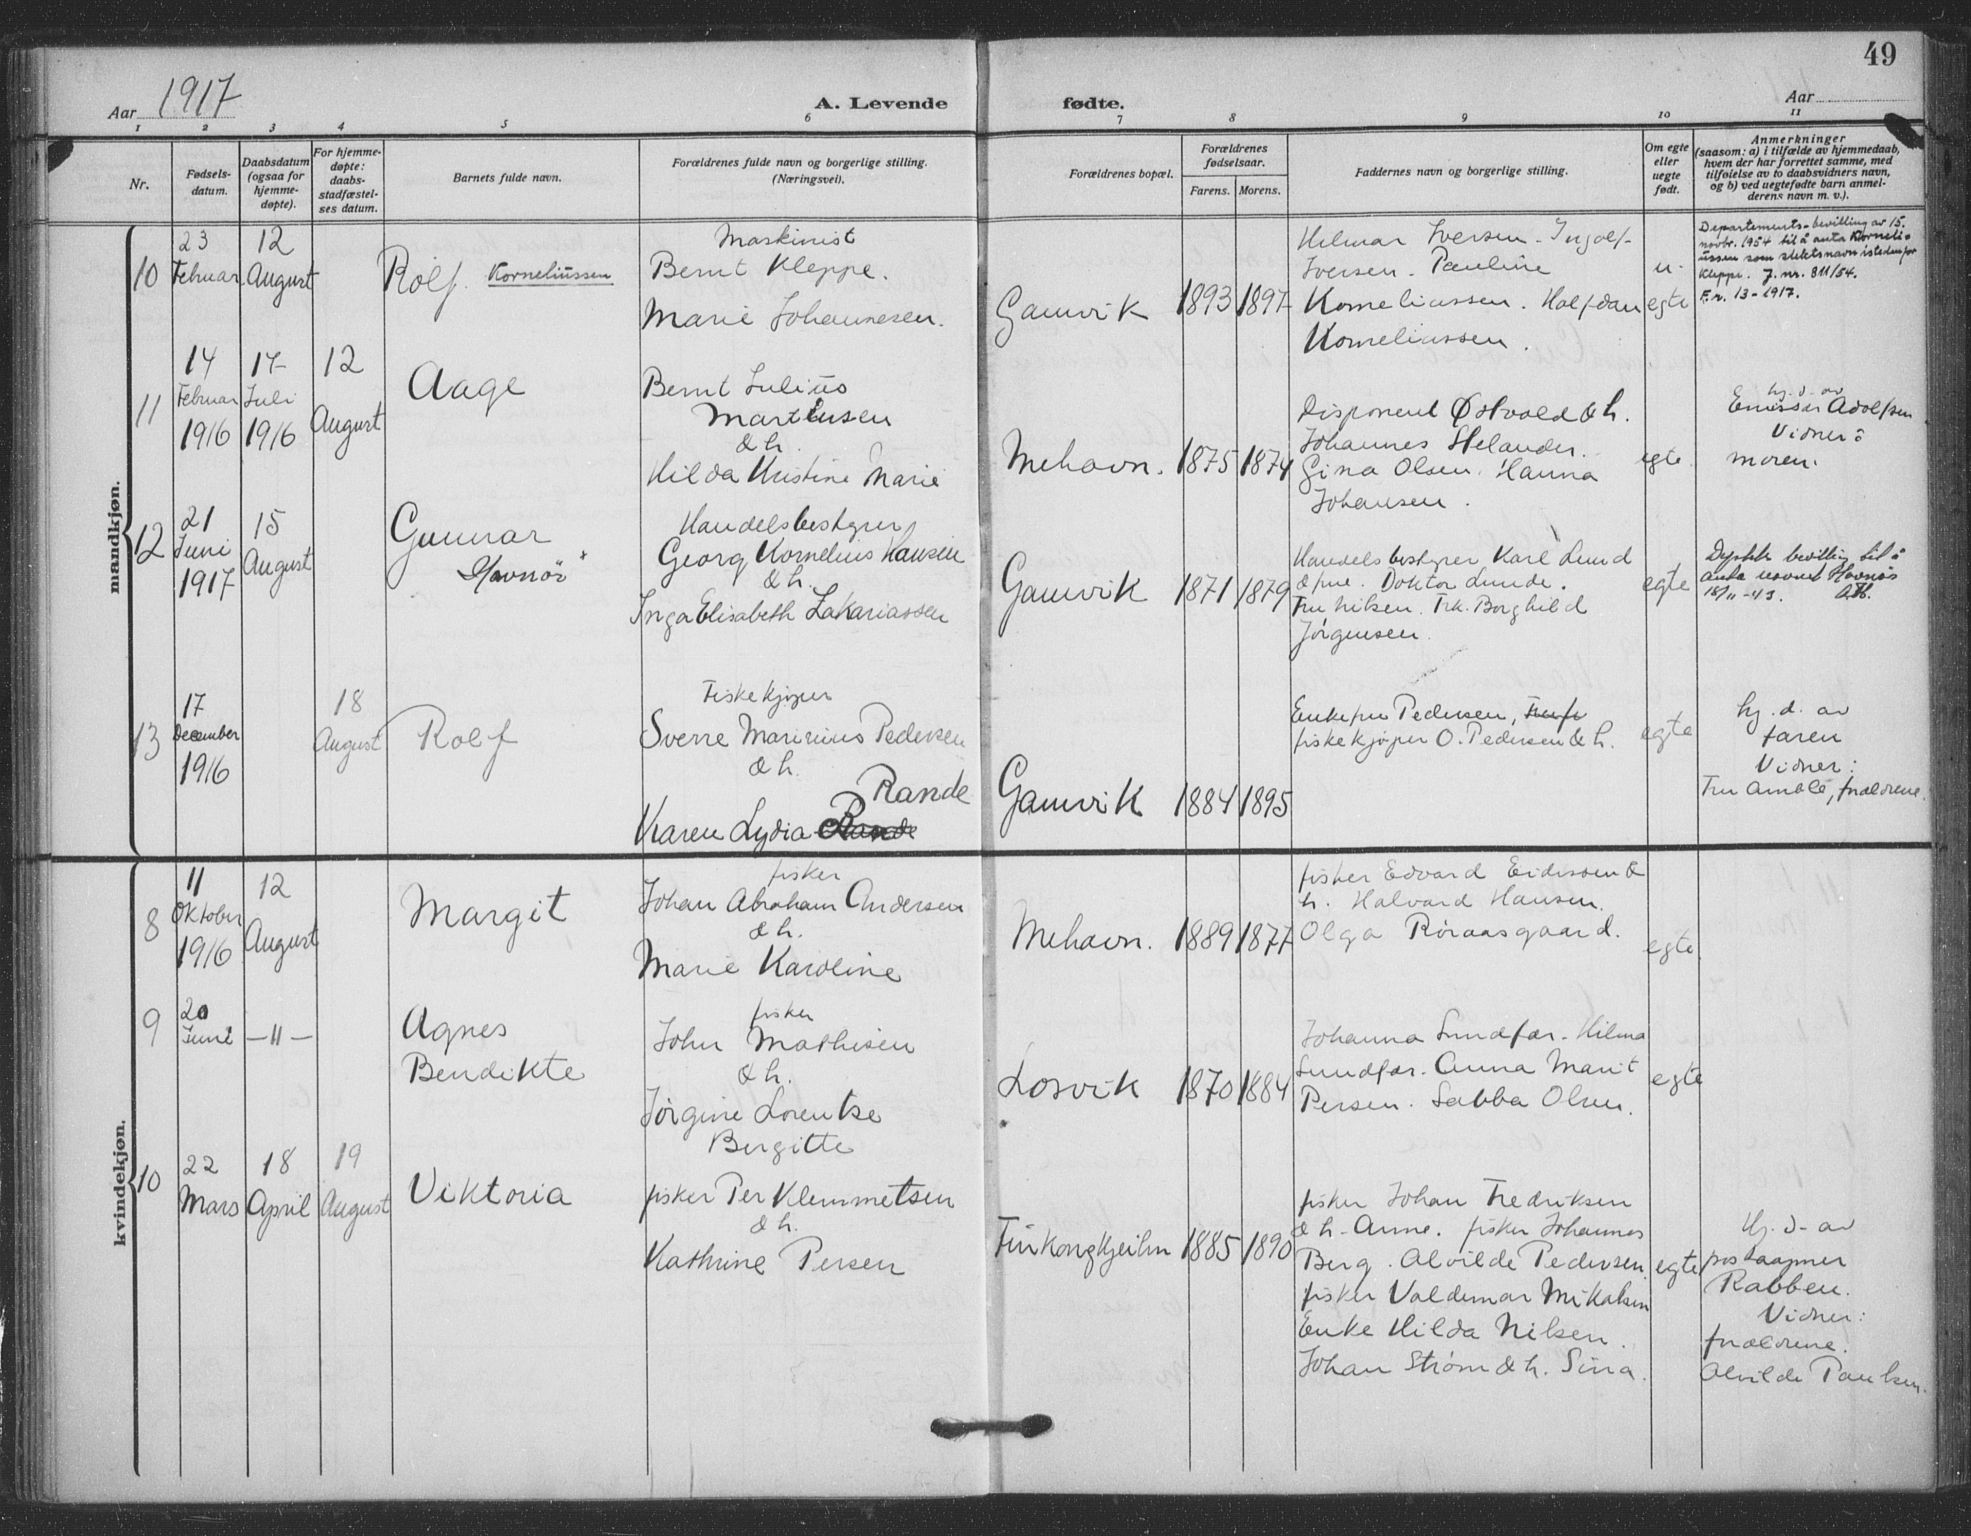 49
Aar 1917
A. Levende fødte.
Aar
1 2 3 4 5 6 7 8 9 10 11
Nr.
Fødsels-
datum.
Daabsdatum
(ogsaa for
hjemme-
døpte).
For hjemme-
døpte:
daabs-
stadfæstel-
ses datum.
Barnets fulde navn.
Forældrenes fulde navn og borgerlige stilling.
(Næringsvei).
Forældrenes bopæl.
Forældrenes
fødselsaar.
Farens. Morens.
Faddernes navn og borgerlige stilling.
Om egte
eller
uegte
født.
Anmerkninger
(saasom: a) i tilfælde av hjemmedaab,
hvem der har forrettet samme, med
tilføielse av to daabsvidners navn,
og b) ved uegtefødte barn anmel-
derens navn m. v.).
mandkjøn.
10
23
Februar
12
August
Rolf. Korneliussen
Maskinist
Bernt Kleppe.
Marie Johannesen.
Gamvik
1893 1897
Hilmar Iversen. Ingolf
Iversen. Pauline
Korneliussen. Halfdan
Korneliussen.
u-
egte
Departements-bevilling av 15.
novbr. 1954 til å anta Korneli-
ussen som slektsnavn istedenfor
Kleppe. J. nr. 811/54.
F. r. 13-1917.
11
14
Februar
1916
17
Juli
1916
12
August
Aage
Bernt Julius
Martinsen
& h.
Hilda Kristine Marie
Mehavn.
1875 1874
Disponent Østvold & h.
Johannes Helander.
Gina Olsen. Hanna
Johansen.
egte
hj. d. av
Emissær Adolfsen
Vidner:
moren.
12
21
Juni
1917
15
August
Gunnar
Havnös
Handelsbestyrer
Georg Kornelius Hansen
& h.
Inga Elisabeth Zakariassen
Gamvik
1871 1879
Handelsbestyrer Karl Lund
& frue. Doktor Lunde.
Fru Nilsen. Frk. Borghild
Jörgensen.
egte
bevilling til å
anta navnet Havnös
18/11-43.
13
17
December
1916
18
August
Rolf
Fiskekjøper
Sverre Marinius Pedersen
& h.
Rande
Karen Lydia Rande
Gamvik
1884 1895
Enkefru Pedersen,
fiskekjøper O. Pedersen & h.
egte
hj. d. av
faren
Vidner:
Fru Amble, forældrene.
kvindekjøn.
8
11
Oktober
1916
12
August
Margit
fisker
Johan Abraham Andersen
& h.
Marie Karoline
Mehavn.
1889 1877
fisker Edvard Eidissen &
h. Halvard Hansen.
Olga Røraasgaard.
egte
9
20
Juni
— 11 —
Agnes
Bendikte
fisker
John Mathisen
& h.
Jørgine Lorentse
Bergitte
Losvik
1870 1884
Johanna Sundfær. Hilma
Sundfær. Anna Marit
Persen. Sabba Olsen.
egte
10
22
Mars
18
April
19
August
Viktoria
fisker Per Klemmetsen
& h.
Kathrine Persen
Finkongkjeilen
1885 1890
fisker Johan Fredriksen
& h. Anne. fisker Johannes
Berg. Alvilde Pedersen.
fisker Valdemar Mikalsen
Enke Hilda Nilsen.
Johan Strøm & h. Sina.
egte
Hj. d. av
postaapner
Rabben.
Vidner:
forældrene.
Alvilde Paulsen.